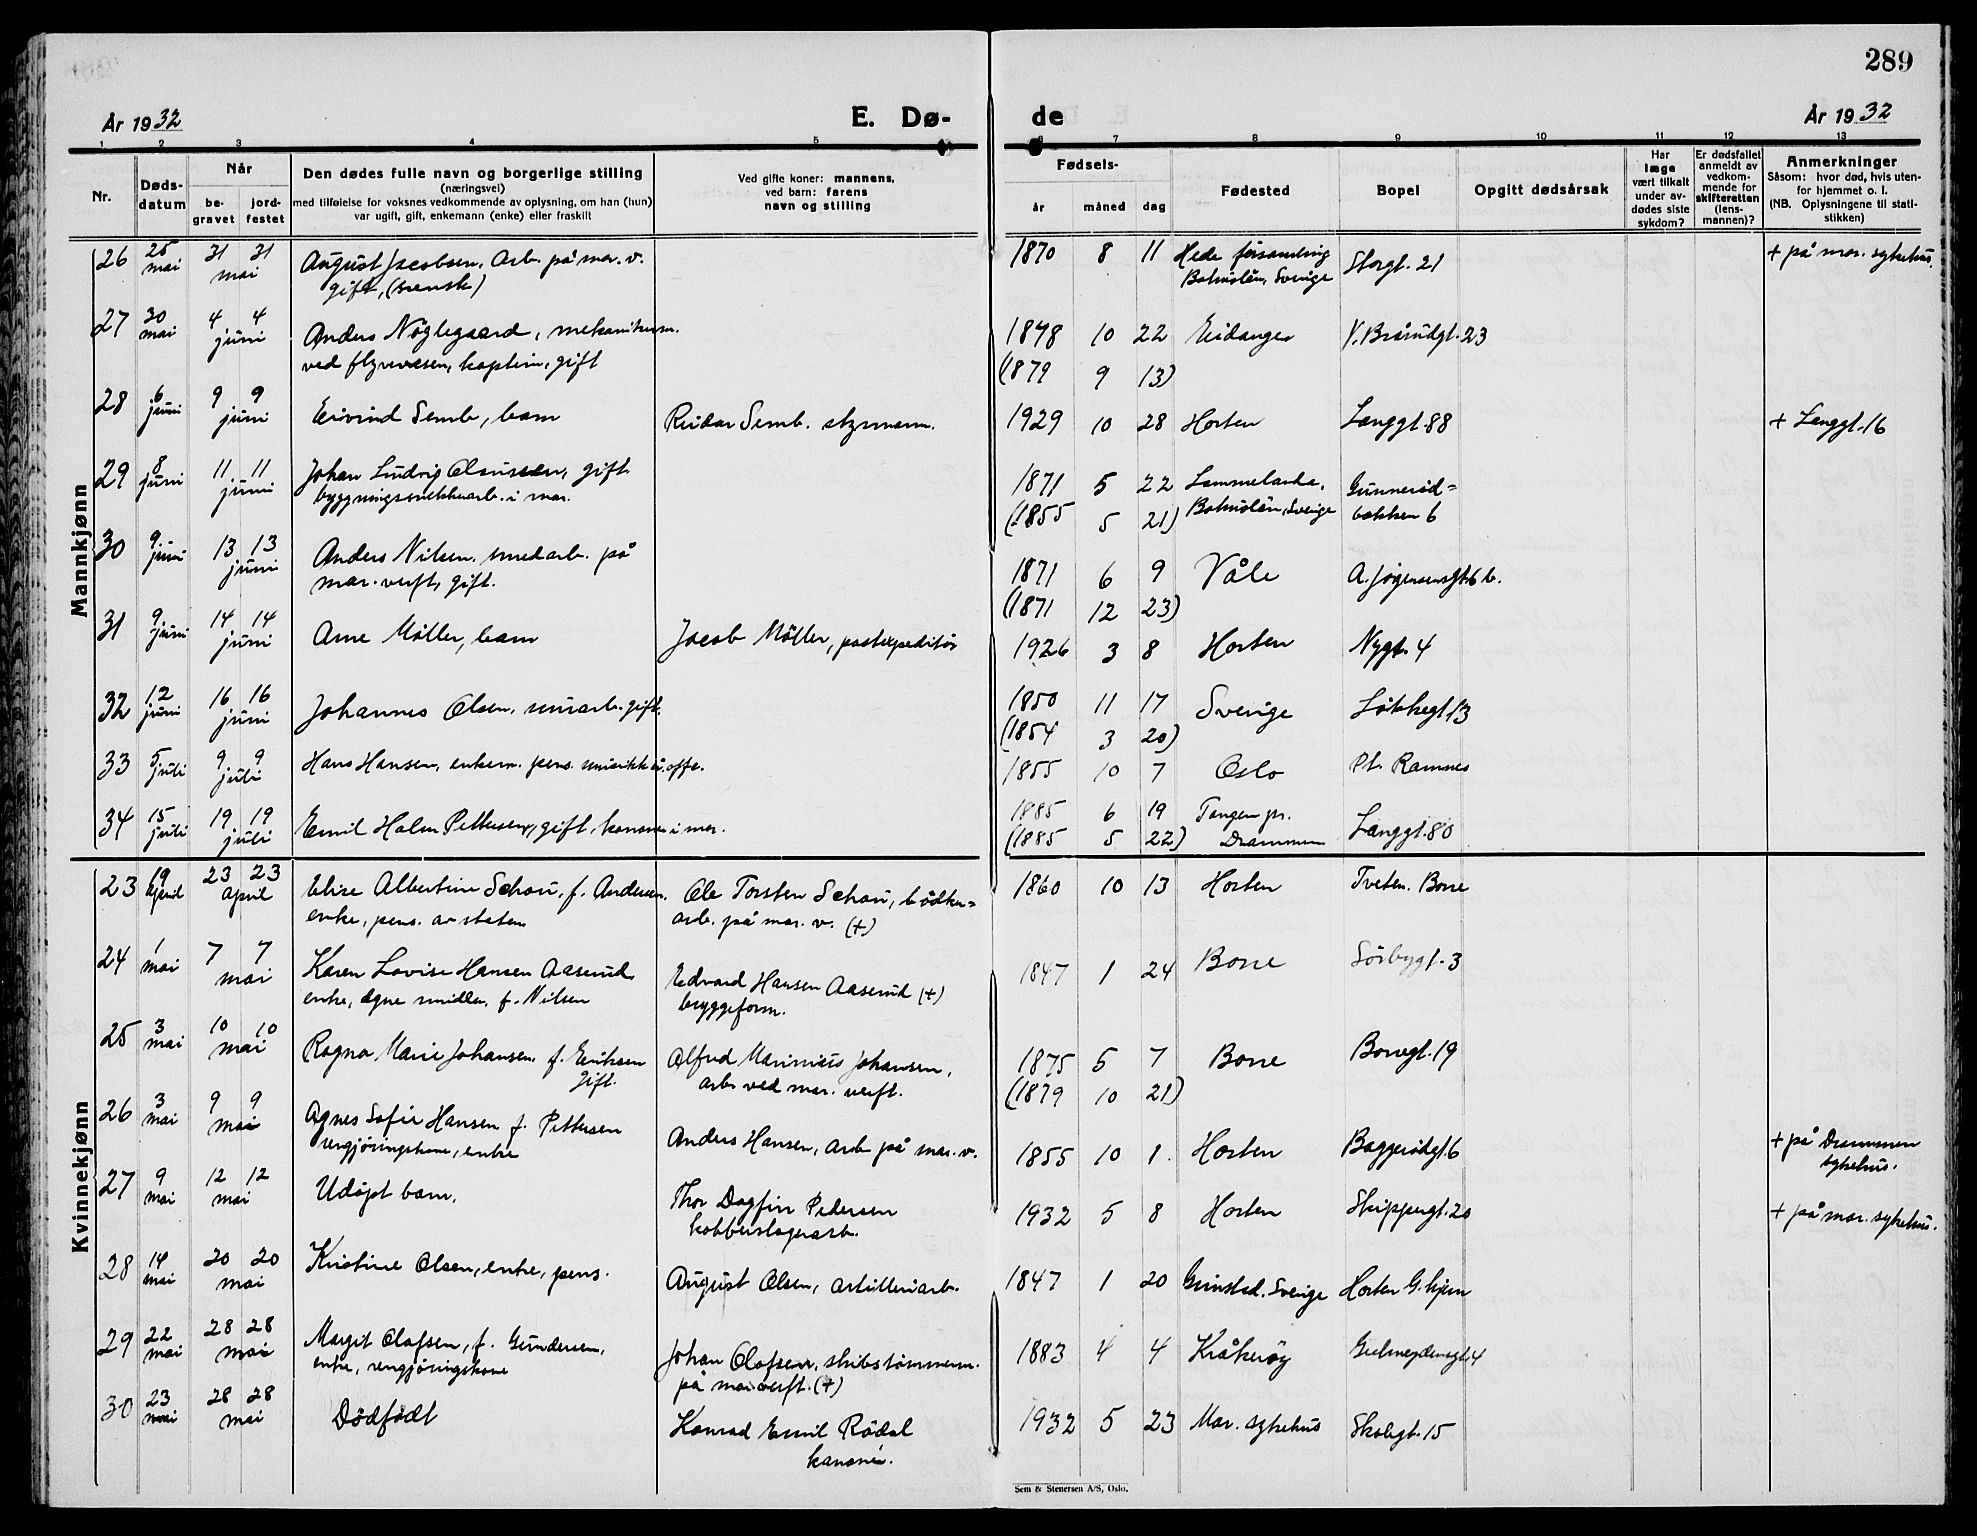 289
År 1932
E. Dø-
de
År 1932
1 2 3 4 5 6 7 8 9 10 11 12 13
Nr.
Døds-
datum
Når
be-
gravet
jord-
festet
Den dødes fulle navn og borgerlige stilling
(næringsvei)
med tilføielse for voksnes vedkommende av oplysning, om han (hun)
var ugift, gift, enkemann (enke) eller fraskilt
Ved gifte koner: mannens,
ved barn: farens
navn og stilling
Fødsels-
år måned dag
Fødested
Bopel
Opgitt dødsårsak
Har
læge
vært tilkalt
under av-
dødes siste
sykdom?
Er dødsfallet
anmeldt av
vedkom-
mende for
skifteretten
(lens-
mannen)?
Anmerkninger
Såsom: hvor død, hvis uten-
for hjemmet o. l.
(NB. Oplysningene til stati-
stikken)
Mannkjønn
26 25 mai 31 31 mai August Jacobsen, Arb. på mar. v. 1870 8 11 Hede församling Storgt. 21 + på mar. sykehus.
gift, (svensk) Bohuslän, Sverige
27 30 mai 4 4 juni Anders Nøglegaard, mekanikerm. 1878 10 22 Eidanger V. Bråtadgt. 23
ved flyvevæsen, kaptein, gift (1879 9 13)
28 6 juni 9 9 juni Eivind Semb, barn Reidar Semb. styrmann. 1929 10 28 Horten Langgt. 88 + Langgt. 16
29 8 juni 11 11 juni Johan Ludvig Olaussen, gift 1871 5 22 Lommelanda, Gunnerød=
byggningssnekkerarb. i mar. (1855 5 21) Bohuslän, Sverige bakken 6
30 9. juni 13 13 juni Anders Nilsen. smedarb. på 1871 6 9 Våle A. Jørgensensgt. 6 b.
mar. verft, gift. (1871 12 23)
31 9. juni 14 14 juni Arne Møller, barn Jacob Møller, postexpeditør 1926 3 8 Horten Nygt. 4
32 12 juni 16 16 juni Johannes Olsen, murarb. gift. 1850 11 17 Sverige Løkkegt. 13
(1854 3 20)
33 5 juli 9 9 juli Hans Hansen, enkem. pens. musikk u.offs. 1855 10 7 Oslo Pt. Ramnes
34 15 juli 19 19 juli Emil Holm Pettersen, gift, kanoner i mar. 1885 6 19 Tangen pr. Langgt. 80
(1885 5 22) Drammen
Kvinnekjønn
23 19 april 23 23 april Elise Albertine Schou, f. Andersen. Ole Torsten Schou, bødker= 1860 10 13 Horten Tveten. Borre
enke, pens. av staten arb. på mar. v. (+)
24 1 mai 7 7 mai Karen Lovise Hansen Aaserud Edvard Hansen Aaserud (+) 1847 1 24 Borre Sørbygt. 3
enke, egne midler, f. Nilsen bryggeform.
25 3 mai 10 10 mai Ragna Marie Johansen. f. Eriksen Alfred Marinius Johansen, 1875 5 7 Borre Borregt. 19
gift. arb. ved mar. verft. (1879 10 21)
26 3 mai 9 9 mai Agnes Sofie Hansen f. Pettersen Anders Hansen, arb på mar. v. 1855 10 1. Horten Baggerødgt. 6 + på Drammen
rengjøringskone, enke sykehus.
27 9 mai 12 12 mai Udøpt barn. Thor Dagfin Pedersen 1932 5 8 Horten Skippergt. 20 + på mar. sykehus.
kobberslagerarb.
28 14 mai 20 20 mai Kristine Olsen, enke, pens. August Olsen, artilleriarb. 1847 1 20 Grimsted. Sverige Horten G. hjem
29 22 mai 28 28 mai Margit Olafsen, f. Gundersen, Johan Olafsen, skibstømmerm. 1883 4 4 Kråkerøy
enke, rengjøringskone på mar. verft. (+)
30 23 mai 28 28 mai Dødfødt Konrad Emil Rødal 1932 5 23 Mar. sykehus Skolegt. 15
kanoner.
Sem & Stenersen A/S, Oslo.